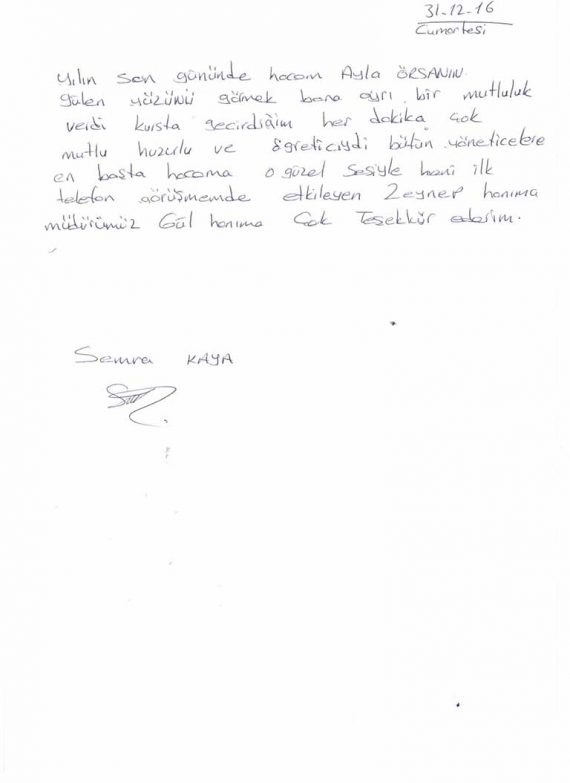 31-12-16
Cumartesi
Yılın son gününde hocam Ayla ÖRSANIN
gülen yüzünü görmek bana ayrı bir mutluluk
verdi kursta geçirdiğim her dakika çok
mutlu huzurlu ve öğreticiydi bütün yöneticelere
en başta hocama o güzel sesiyle beni ilk
telefon görüşmemde etkileyen Zeynep hanıma
müdürümüz Gül hanıma Çok Teşekkür ederim.
Semra KAYA